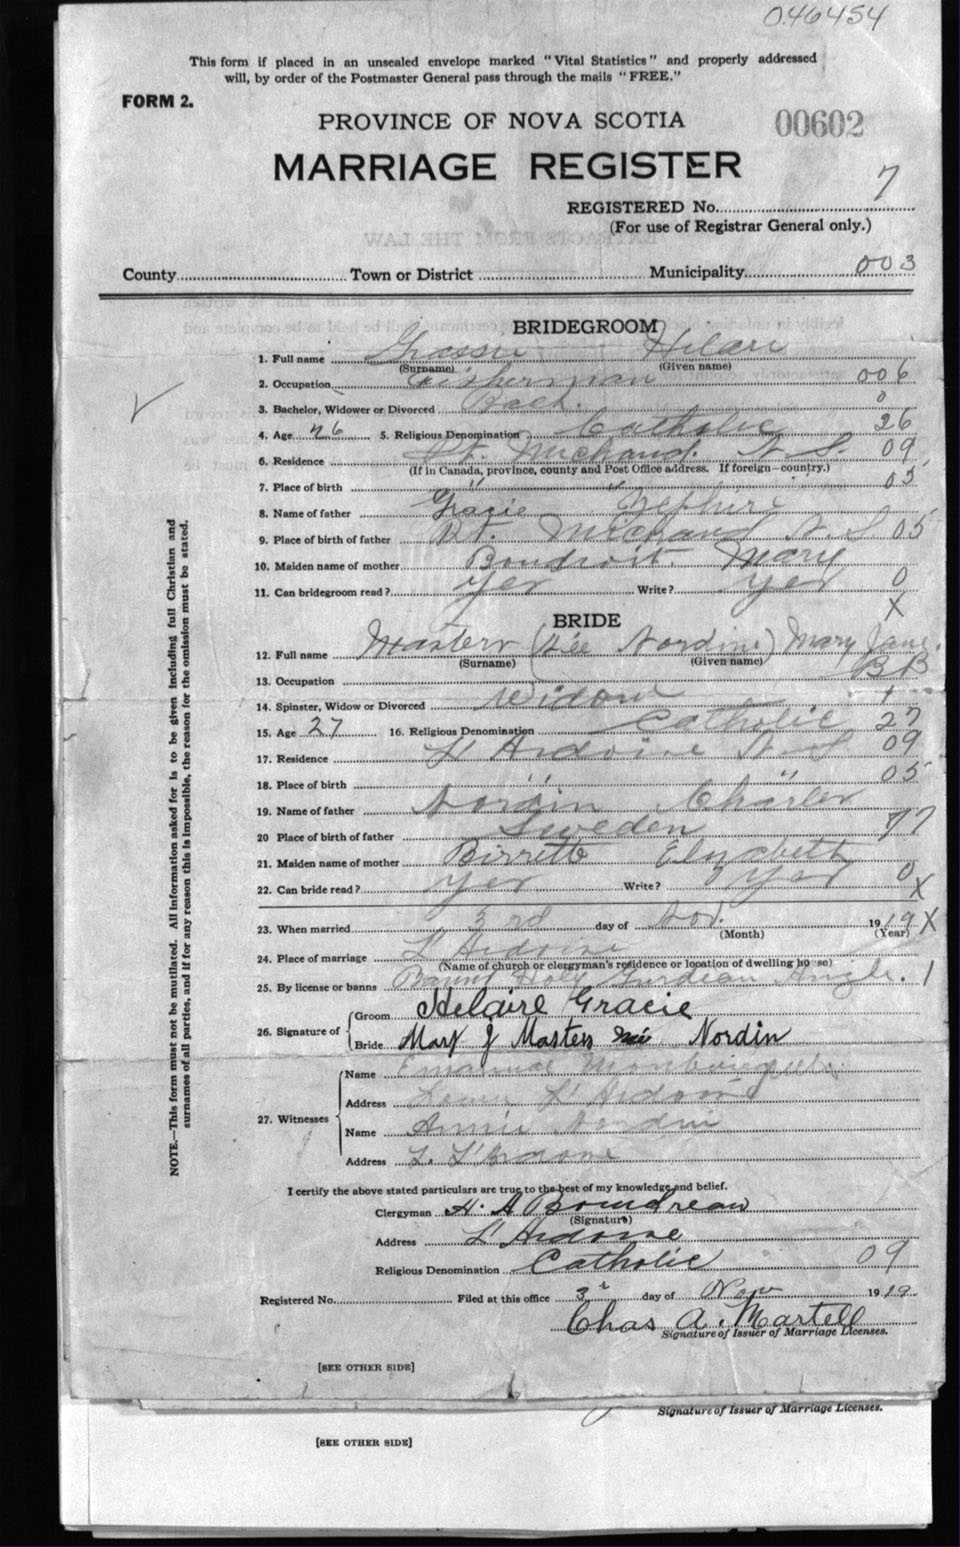 046454
This form if placed in an unsealed envelope marked "Vital Statistics" and properly addressed
will, by order of the Postmaster General pass through the mails "FREE."
FORM 2.
PROVINCE OF NOVA SCOTIA
00602
MARRIAGE REGISTER
REGISTERED No. 7
(For use of Registrar General only.)
County Town or District Municipality 003
BRIDEGROOM
1. Full name Grassie Hilare
(Surname) (Given name)
2. Occupation Fisherman 006
3. Bachelor, Widower or Divorced Bach. 0
4. Age 26 5. Religious Denomination Catholic 26
6. Residence Pt. Michaud. N. S. 09
(If in Canada, province, county and Post Office address. If foreign—country.)
7. Place of birth " " 05
8. Name of father Gracie Zephire
9. Place of birth of father Pt. Michaud N. S 05
10. Maiden name of mother Boudroit. Mary
11. Can bridegroom read? Yes Write? Yes 0
X
BRIDE
12. Full name Masters (Née Nordine) Mary Jane
(Surname) (Given name)
13. Occupation BB
14. Spinster, Widow or Divorced Widow 1
15. Age 27 16. Religious Denomination Catholic 27
17. Residence L'Ardoise N.S 09
18. Place of birth " " 05
19. Name of father Nordin Charles
20 Place of birth of father Sweden 77
21. Maiden name of mother Birrette Elyzabeth
22. Can bride read? Yes Write? Yes 0
X
23. When married 3rd day of Nov. 1919 X
(Month) (Year)
24. Place of marriage L'Ardoise
(Name of church or clergyman's residence or location of dwelling house)
25. By license or banns Banns Holy Angle. 1
26. Signature of
Groom Helaire Gracie
Bride Mary J Masters née Nordin
27. Witnesses
Name
Address Lower L'Ardoise
Name Annie Nordin
Address L. L'Ardoise
I certify the above stated particulars are true to the best of my knowledge and belief.
Clergyman H. A Boudreau
(Signature)
Address L'Ardoise
Religious Denomination Catholic 09
Registered No. Filed at this office 3r day of Nov 1919
Chas A. Martell
Signature of Issuer of Marriage Licenses.
[SEE OTHER SIDE]
NOTE.—This form must not be mutilated. All information asked for is to be given including full Christian and
surnames of all parties, and if for any reason this is impossible, the reason for the omission must be stated.
Signature of Issuer of Marriage Licenses.
[SEE OTHER SIDE]